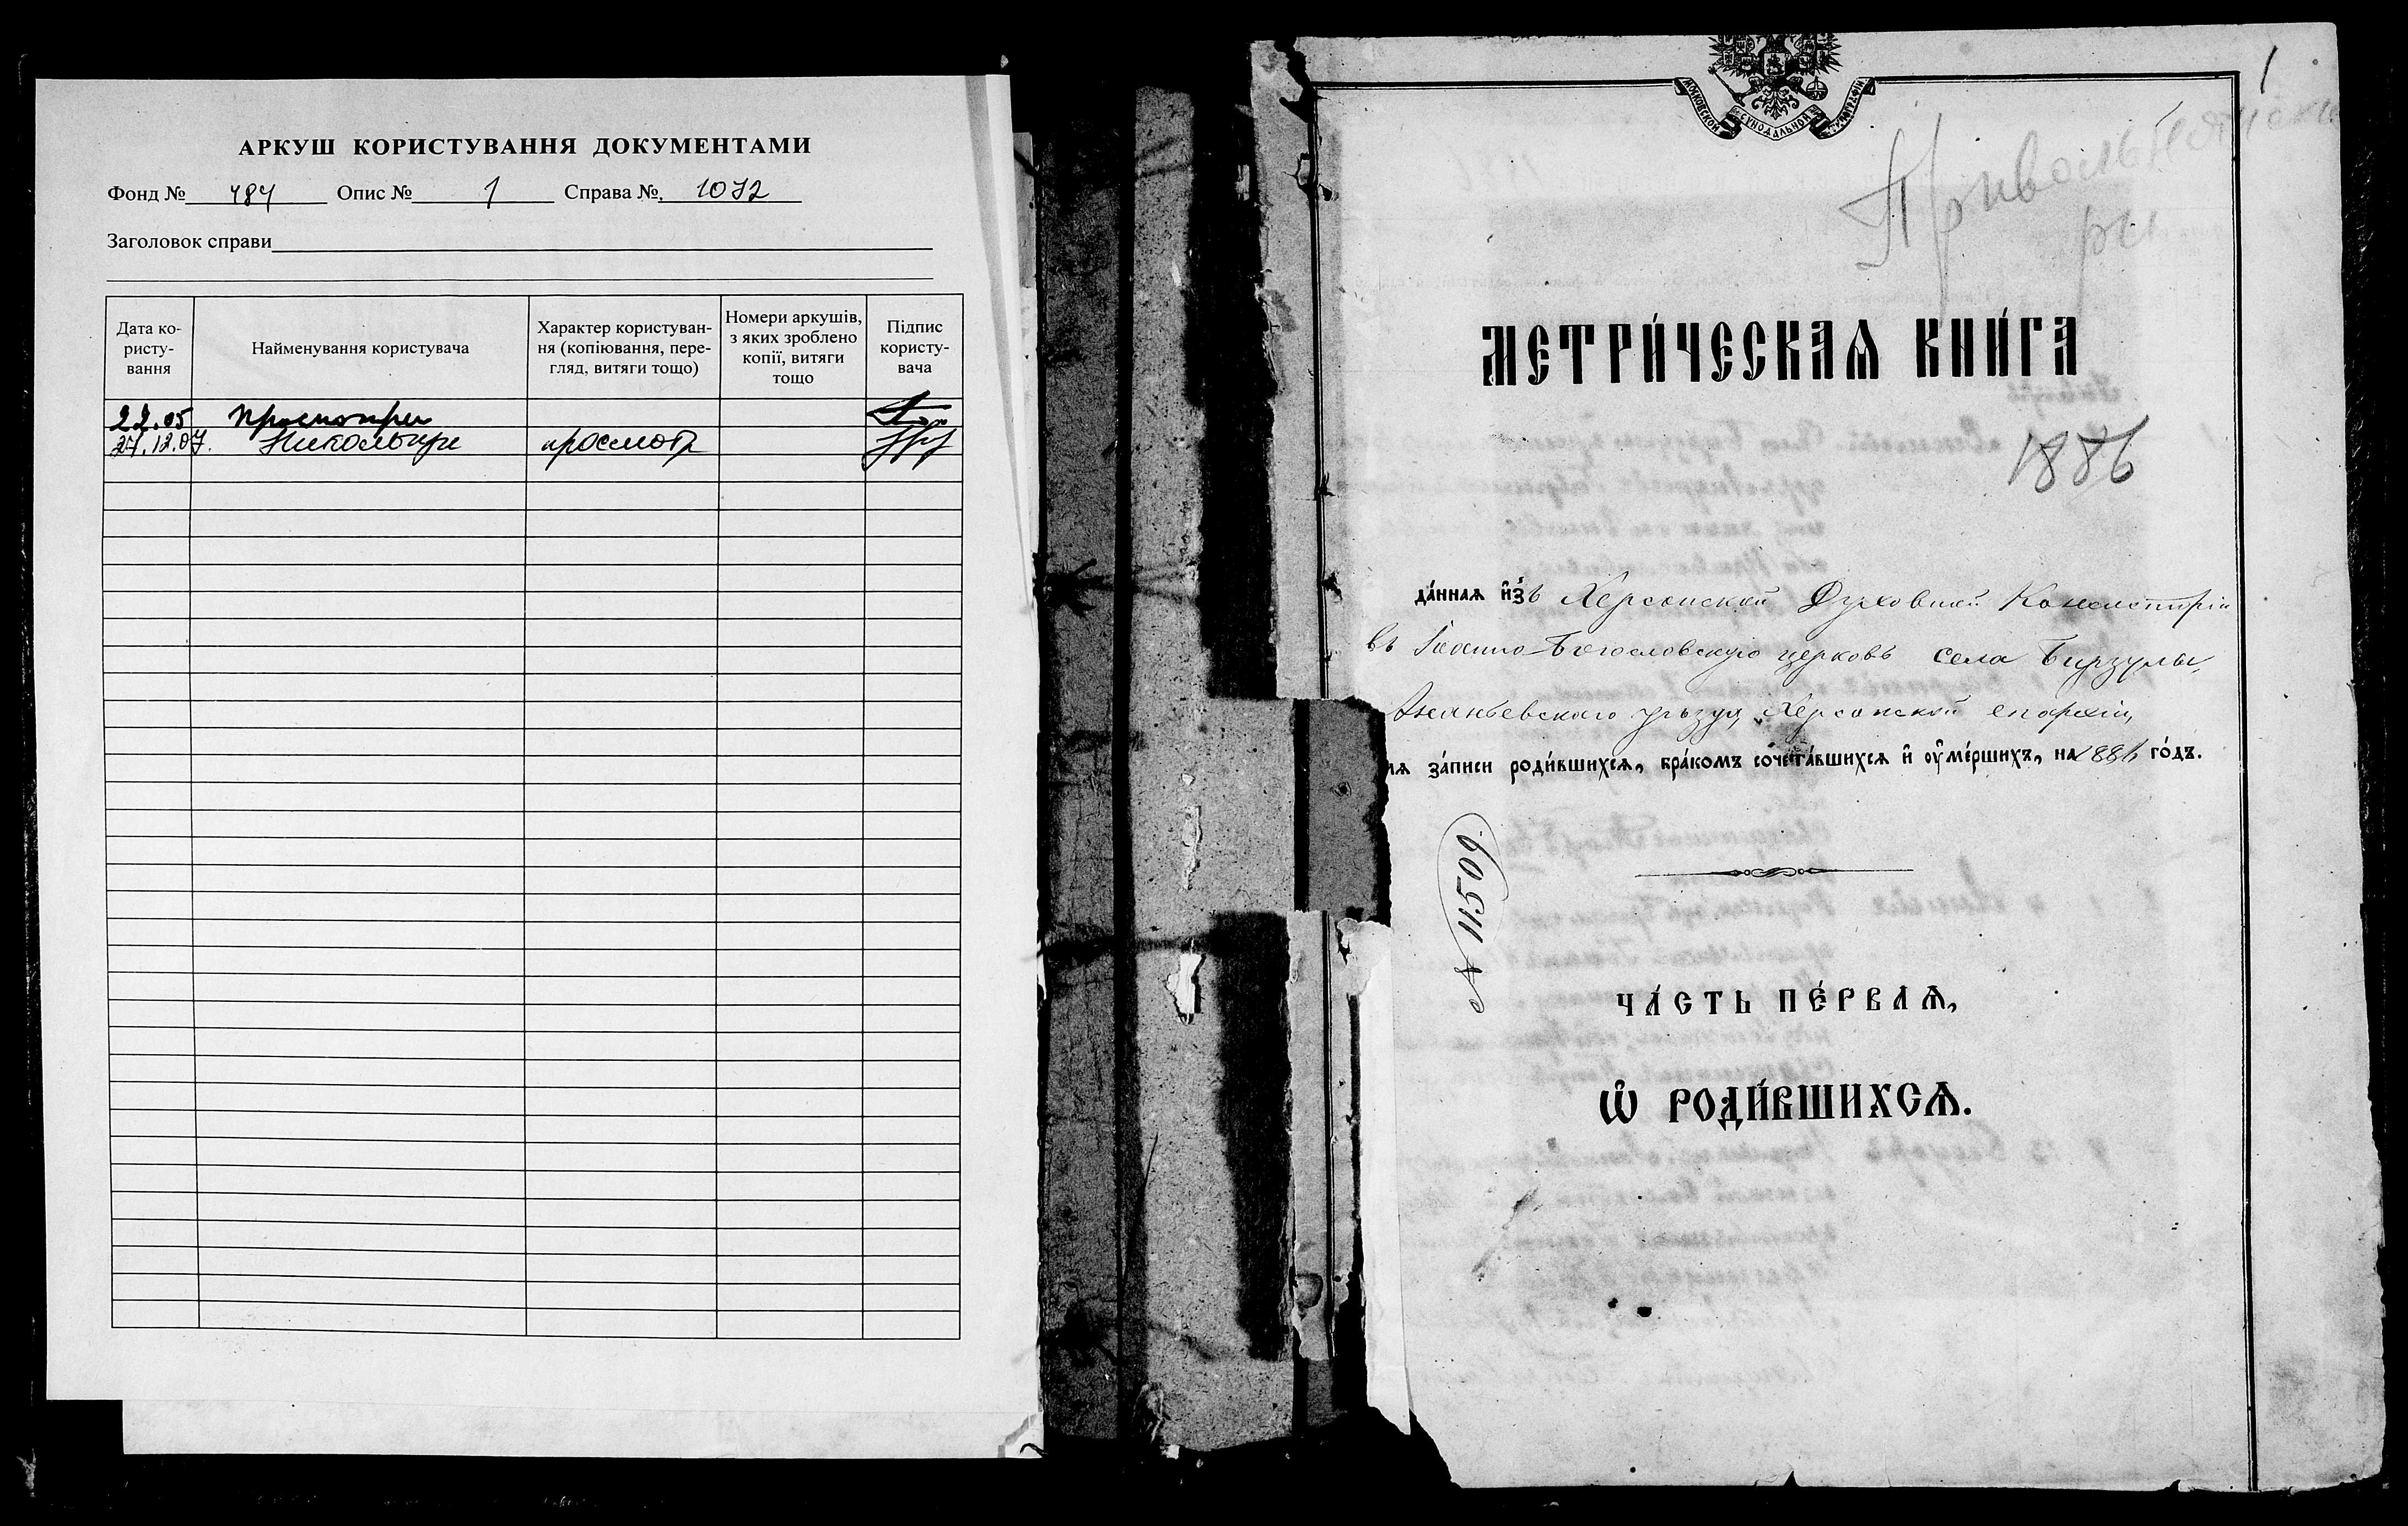 АРКУШ КОРИСТУВАННЯ ДОКУМЕНТАМИ
Фонд № 484 Опис № 1 Справа № 1072
Заголовок справи
Дата ко-
ристу-
вання
Найменування користувача
Характер користуван-
ня (копіювання, пере-
гляд, витяги тощо)
Номери аркушів,
з яких зроблено
копії, витяги
тощо
Підпис
користу-
вача
22.05
27.12.07. просмотр
1
МОСКОВСКОЙ СУНОДАЛЬНОЙ ТИПОГРАФІИ
МЕТРИ́ЧЕСКАѦ КНИ́ГА
1886
да́ннаѧ и҆з̾ъ Херсонской Духовной Консисторіи
въ Іоанно-Богословскую церковь села Бирзулы,
Ананьевскаго уѣзда, Херсонской епархіи,
лѧ за́писи роди́вшихсѧ, бра́комъ сочета́вшихсѧ и҆ ᲂу҆ме́ршихъ, на 1886 го́дъ.
№ 11509
ЧА́СТЬ ПЕ́РВАѦ,
Ѡ҆ РОДИ́ВШИХСѦ.